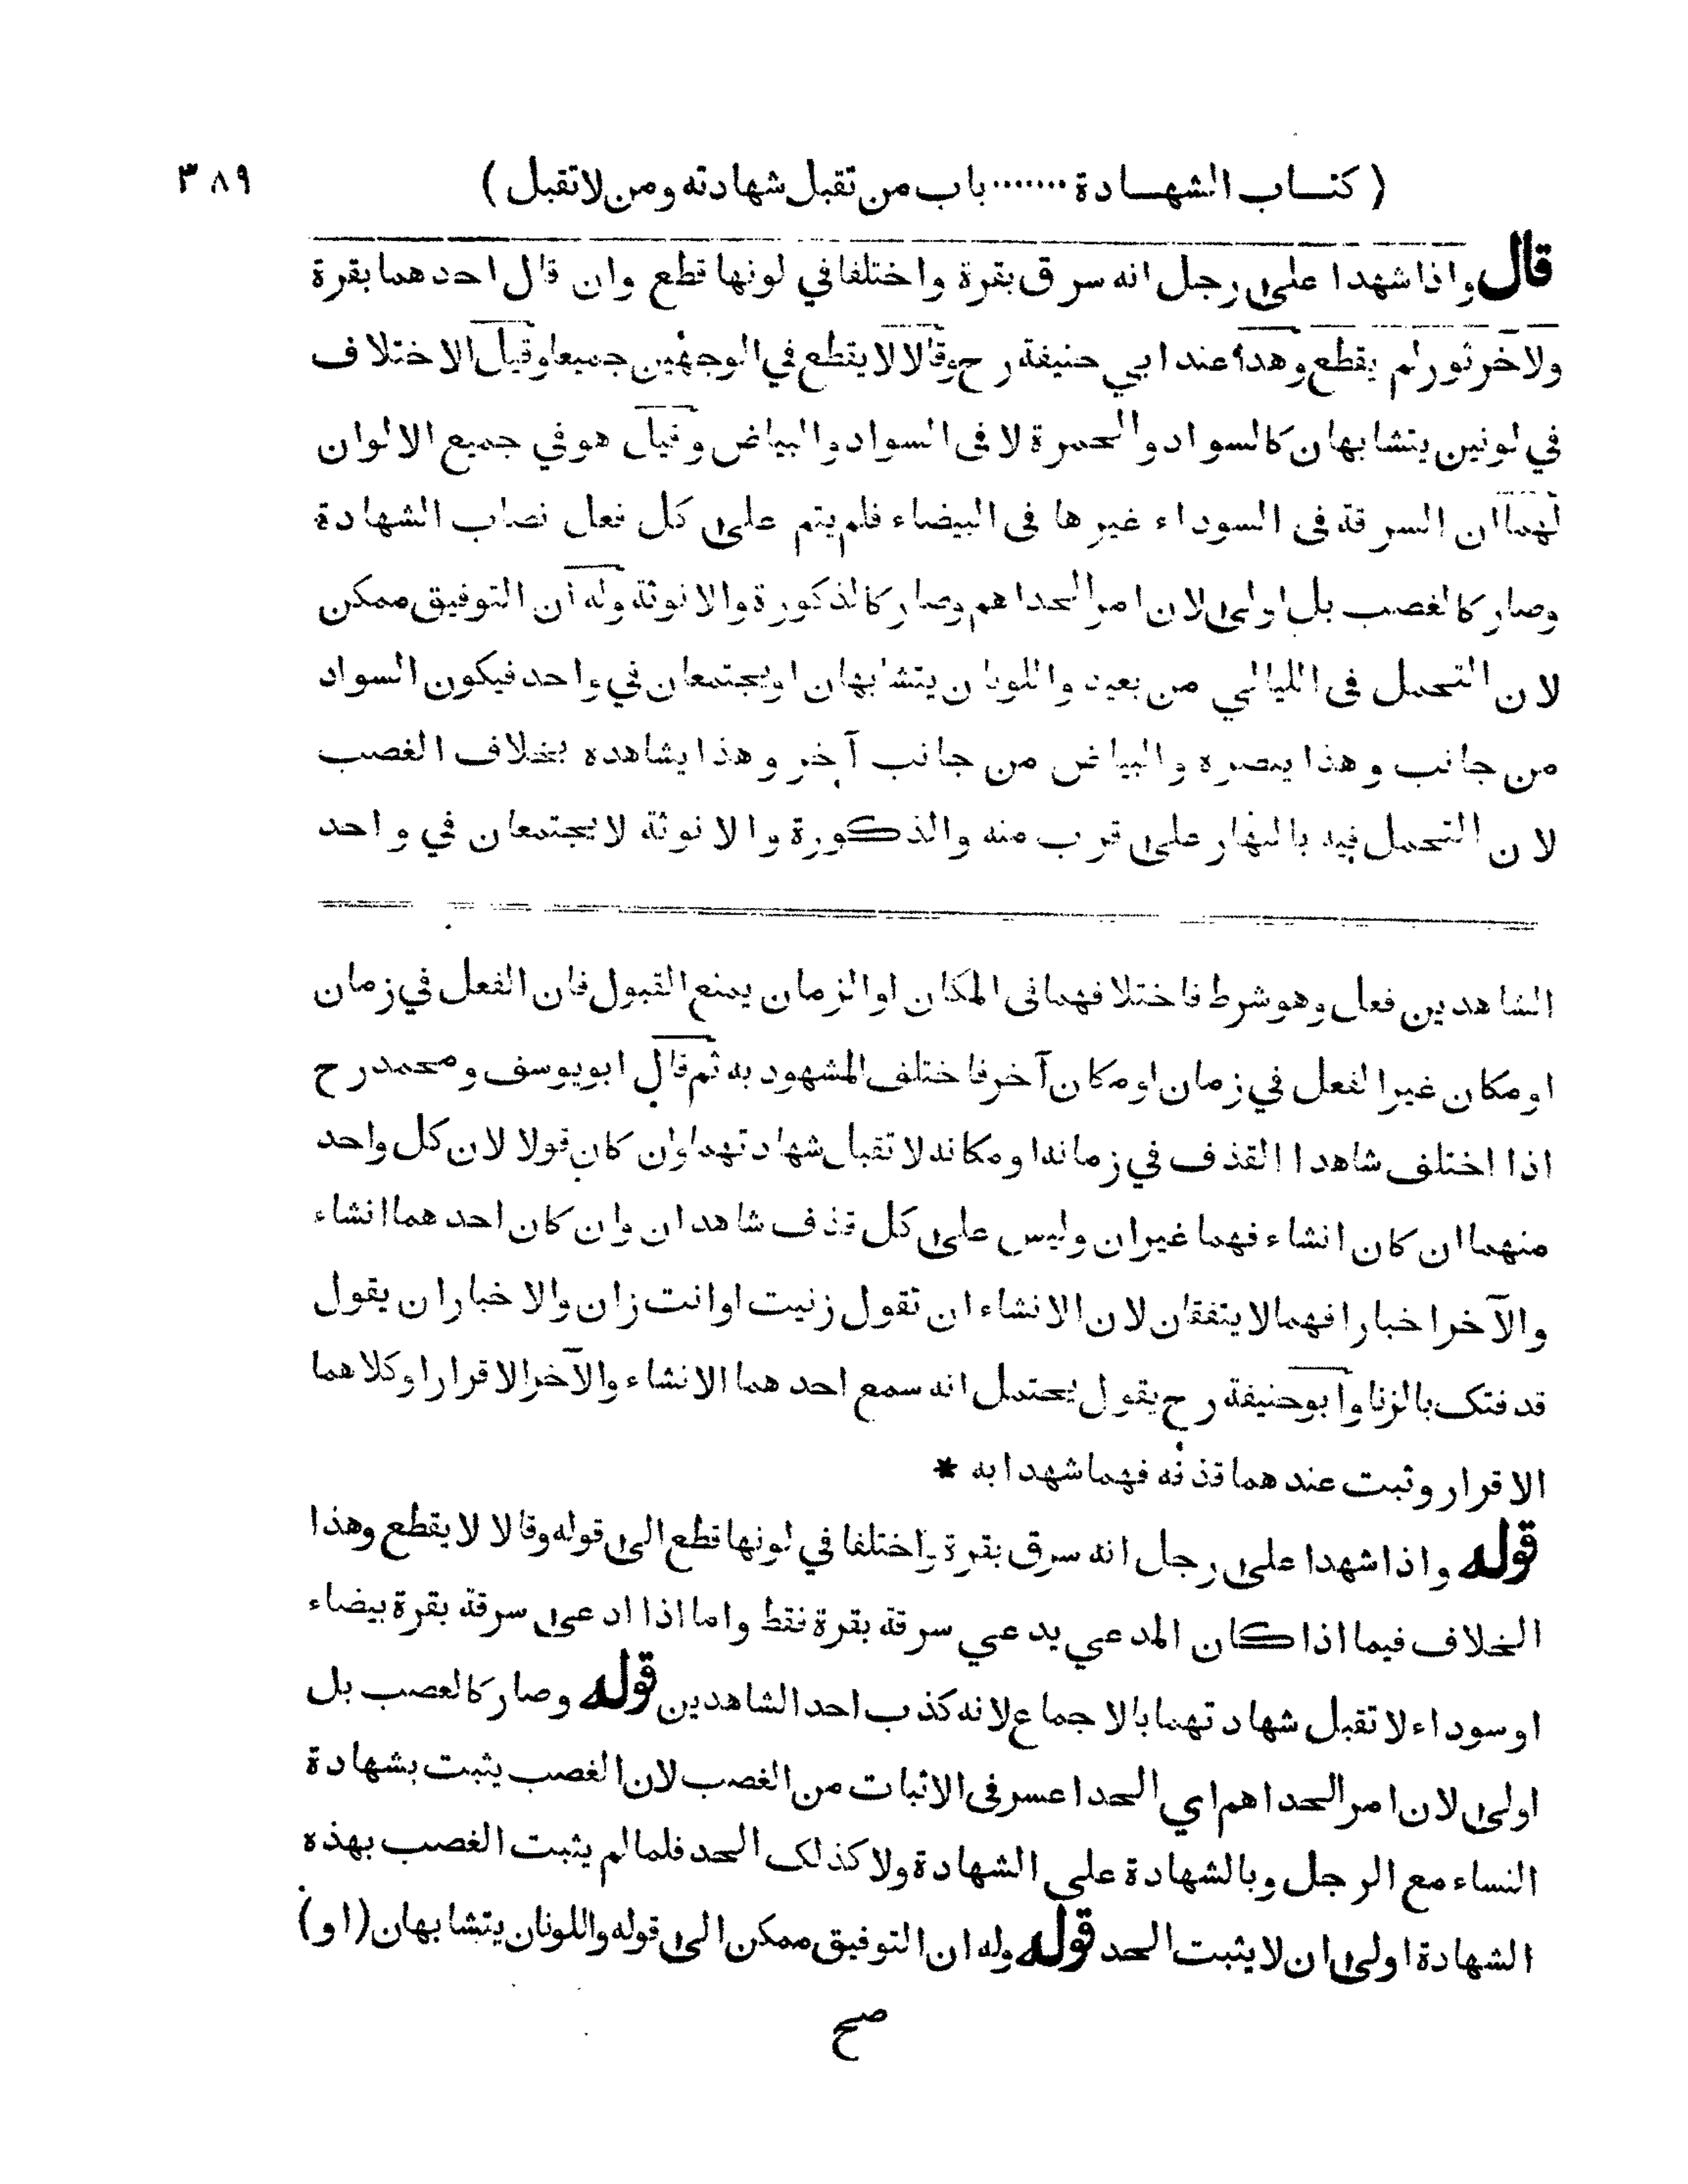 ( كتاب الشهادة ······· باب من تقبل شهادته ومن لا تقبل ) ٣٨٩
قال واذا شهدا على رجل انه سرق بقرة واختلفا في لونها قطع وان قال احدهما بقرة
ولآخر ثور لم يقطع وهذا عند ابي حنيفة رح وقالا لا يقطع في الوجهين جميعا وقيل الاختلاف
في لونين يتشابهان كالسواد والحمرة لا فى السواد والبياض وقيل هو في جميع الالوان
لهما ان السرقة فى السوداء غيرها فى البيضاء فلم يتم على كل فعل نصاب الشهادة
وصار كالغصب بل اولى لان امر الحد اهم وصار كالذكورة والانوثة وله ان التوفيق ممكن
لان التحمل فى الليالي من بعيد واللونان يتشابهان او يجتمعان في واحد فيكون السواد
من جانب وهذا يبصره والبياض من جانب آخر وهذا يشاهده بخلاف الغصب
لان التحمل فيه بالنهار على قرب منه والذكورة والانوثة لا يجتمعان في واحد
الشاهدين فعل وهو شرط فاختلافهما فى المكان او الزمان يمنع القبول فان الفعل في زمان
او مكان غير الفعل في زمان او مكان آخر فاختلف المشهود به ثم قال ابو يوسف ومحمد رح
اذا اختلف شاهدا القذف في زمانه او مكانه لا تقبل شهادتهما وان كان قولا لان كل واحد
منهما ان كان انشاء فهما غيران وليس على كل قذف شاهدان وان كان احدهما انشاء
والآخر اخبارا فهما لا يتفقان لان الانشاء ان تقول زنيت او انت زان والاخبار ان يقول
قدفتک بالزنا وابو حنيفة رح يقول يحتمل انه سمع احدهما الانشاء والآخر الاقرار او كلاهما
الاقرار وثبت عندهما قذفه فهما شهدا به *
قوله واذا شهدا على رجل انه سرق بقرة واختلفا في لونها قطع الى قوله وقالا لا يقطع وهذا
الخلاف فيما اذا كان المدعي يدعي سرقة بقرة فقط واما اذا ادعى سرقة بقرة بيضاء
او سوداء لا تقبل شهادتهما بالاجماع لانه كذب احد الشاهدين قوله وصار كالغصب بل
اولى لان امر الحد اهم اي الحد اعسر فى الاثبات من الغصب لان الغصب يثبت بشهادة
النساء مع الرجل وبالشهادة على الشهادة ولا كذلک الحد فلما لم يثبت الغصب بهذه
الشهادة اولى ان لا يثبت الحد قوله وله ان التوفيق ممكن الى قوله واللونان يتشابهان (او)
صح